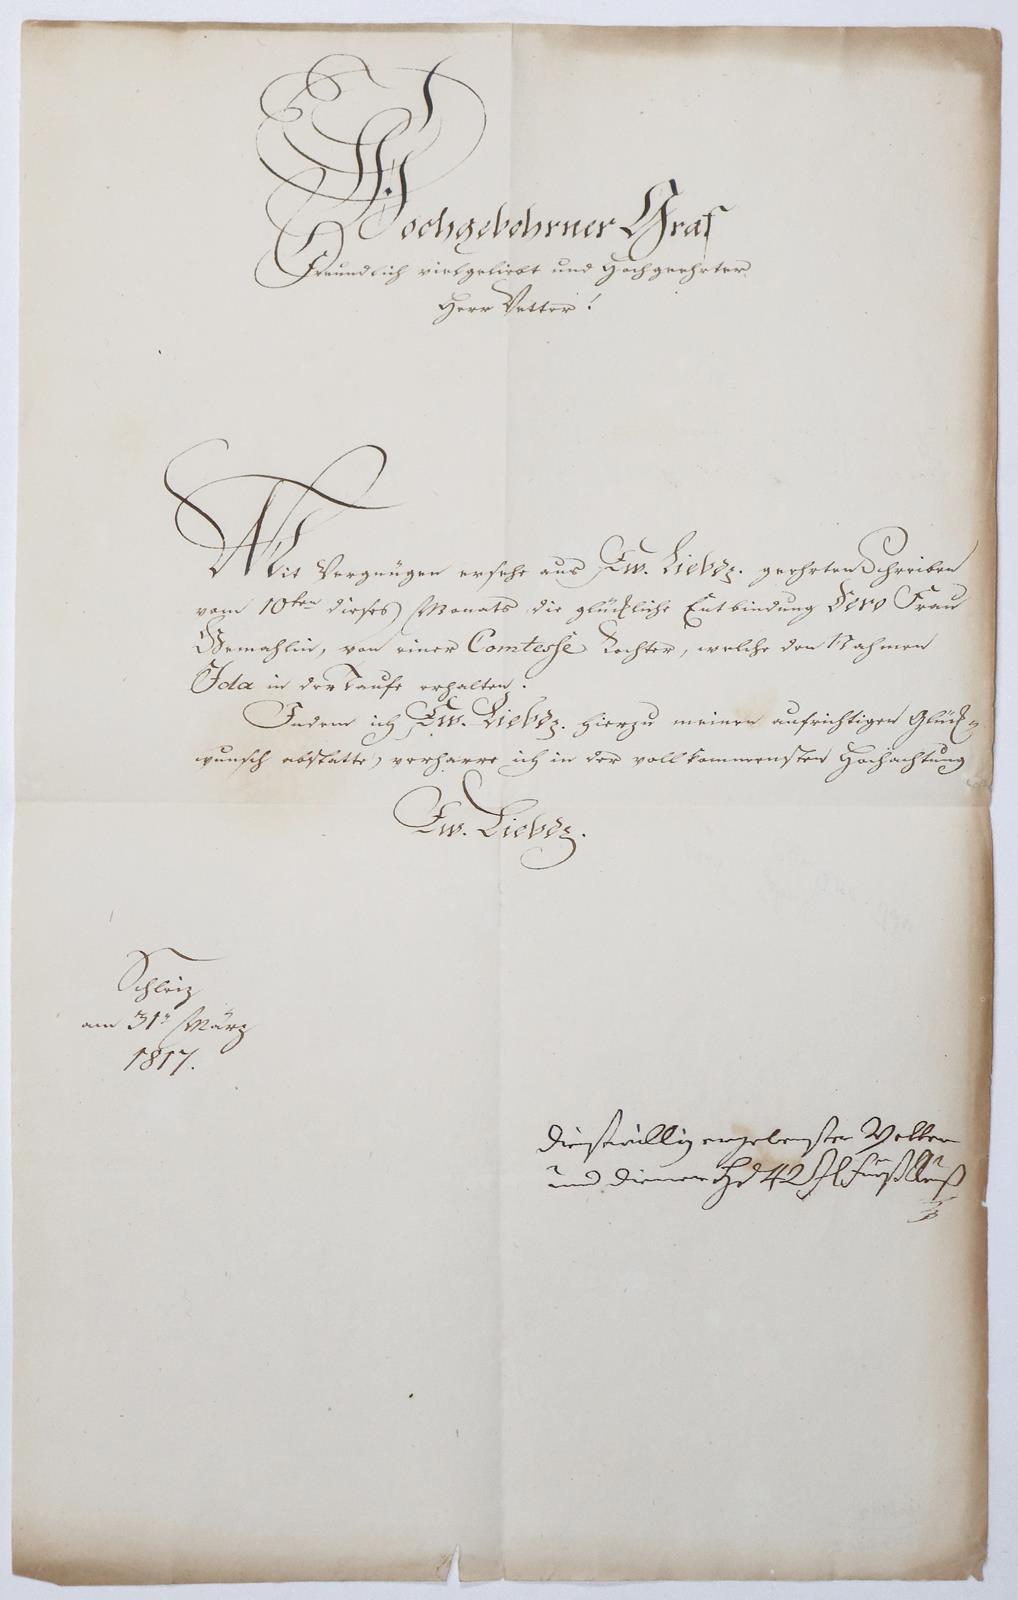 Hochgebohrner Graf
Freundlich vielgeliebt und Hochgeehrter
Herr Vetter!
Mit Vergnügen ersehe aus Ew. Liebdz. geehrten Schreiben
vom 10ten dieses Monats die glückliche Entbindung Dero Frau
Gemahlin, von einer Comtesse Tochter, welche den Nahmen
Ida in der Taufe erhalten.
Indem ich Ew. Liebdz. hierzu meinen aufrichtigen Glück=
wunsch abstatte, verharre ich in der vollkommensten Hochachtung
Ew. Liebdz.
Schleiz
am 31n März
1817.
dienstwillig ergebenster Vetter
und Diener Hr 42 Fürst Reuß